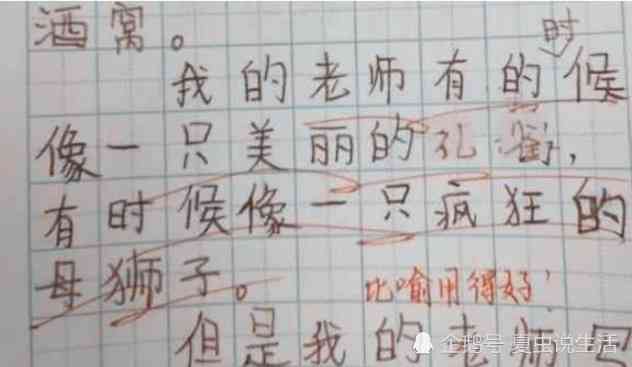 酒窝。
时
我的老师有的候
像一只美丽的孔雀,
有时候像一只疯狂的
母狮子。
比喻用得好!
但是我的老师
企鹅号 夏虫说生活